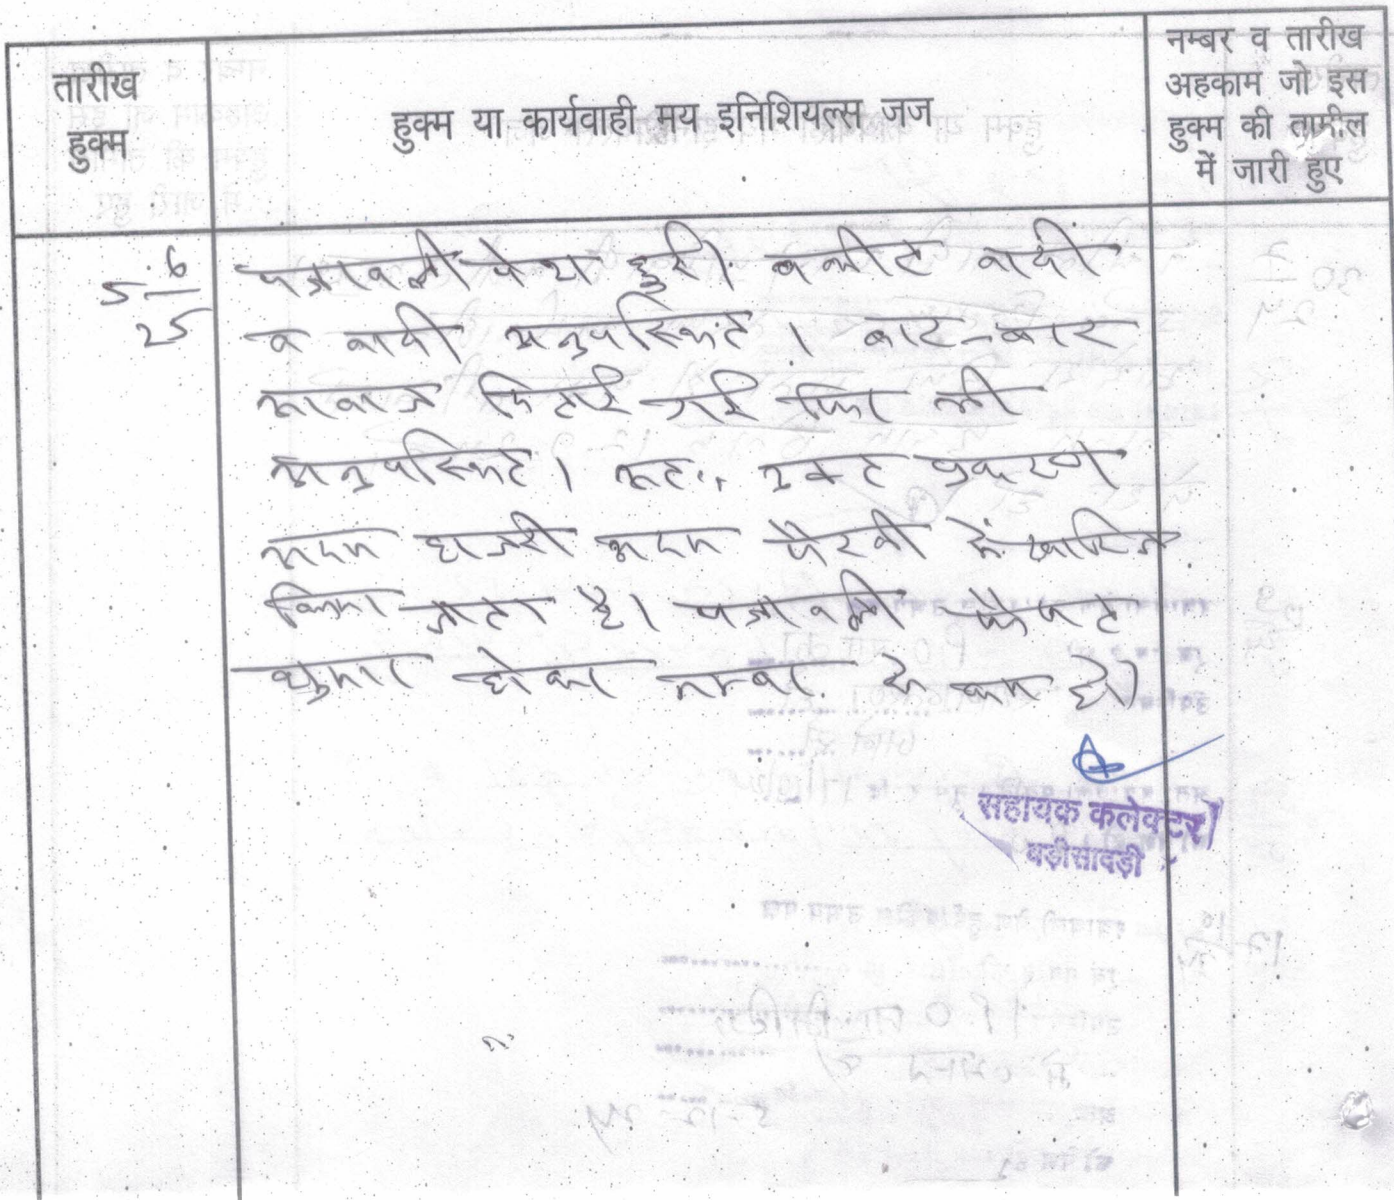 तारीख
हुक्म
हुक्म या कार्यवाही मय इनिशियल्स जज
नम्बर व तारीख
अहकाम जो इस
हुक्म की तामील
में जारी हुए
5 6/25
पत्रावली पेश हुई। वकील वादी
व वादी अनुपस्थित। बार-बार
आवाज दिलाई गई फिर भी
अनुपस्थित। अतः प्रकरण
अदम हाजरी अदम पैरवी में खारिज
किया जाता है। पत्रावली फैसल
शुमार होकर नम्बर से कम हो।
सहायक कलेक्टर
बड़ीसादड़ी